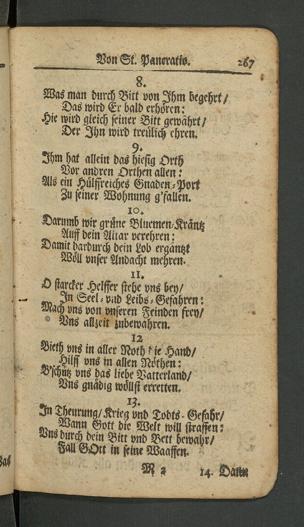 Von St. Pancratio. 267
8.
Was man durch Bitt von Ihm begehrt/
Das wird Er bald erhören:
Hie wird gleich seiner Bitt gewährt/
Der Ihn wird treulich ehren.
9.
Ihm hat allein das hiesig Orth
Vor andren Orthen allen:
Als ein Hülffreiches Gnaden-Port
Zu seiner Wohnung g'fallen.
10.
Darumb wir grüne Bluemen-Kräntz
Auff dein Altar verehren:
Damit dardurch dein Lob ergäntzt
Wöll vnser Andacht mehren.
11.
O starcker Helffer stehe vns bey/
In Seel- vnd Leibs-Gefahren:
Mach vns von vnseren Feinden frey/
Vns allzeit zubewahren.
12
Bieth vns in aller Noth die Hand/
Hilff vns in allen Nöthen:
B'schütz vns das liebe Vatterland/
Vns gnädig wöllst erretten.
13.
In Theurung/ Krieg vnd Todts-Gefahr/
Wann Gott die Welt will straffen:
Vns durch dein Bitt vnd Bett bewahr/
Fall GOtt in seine Waaffen.
M 2 14. Dann